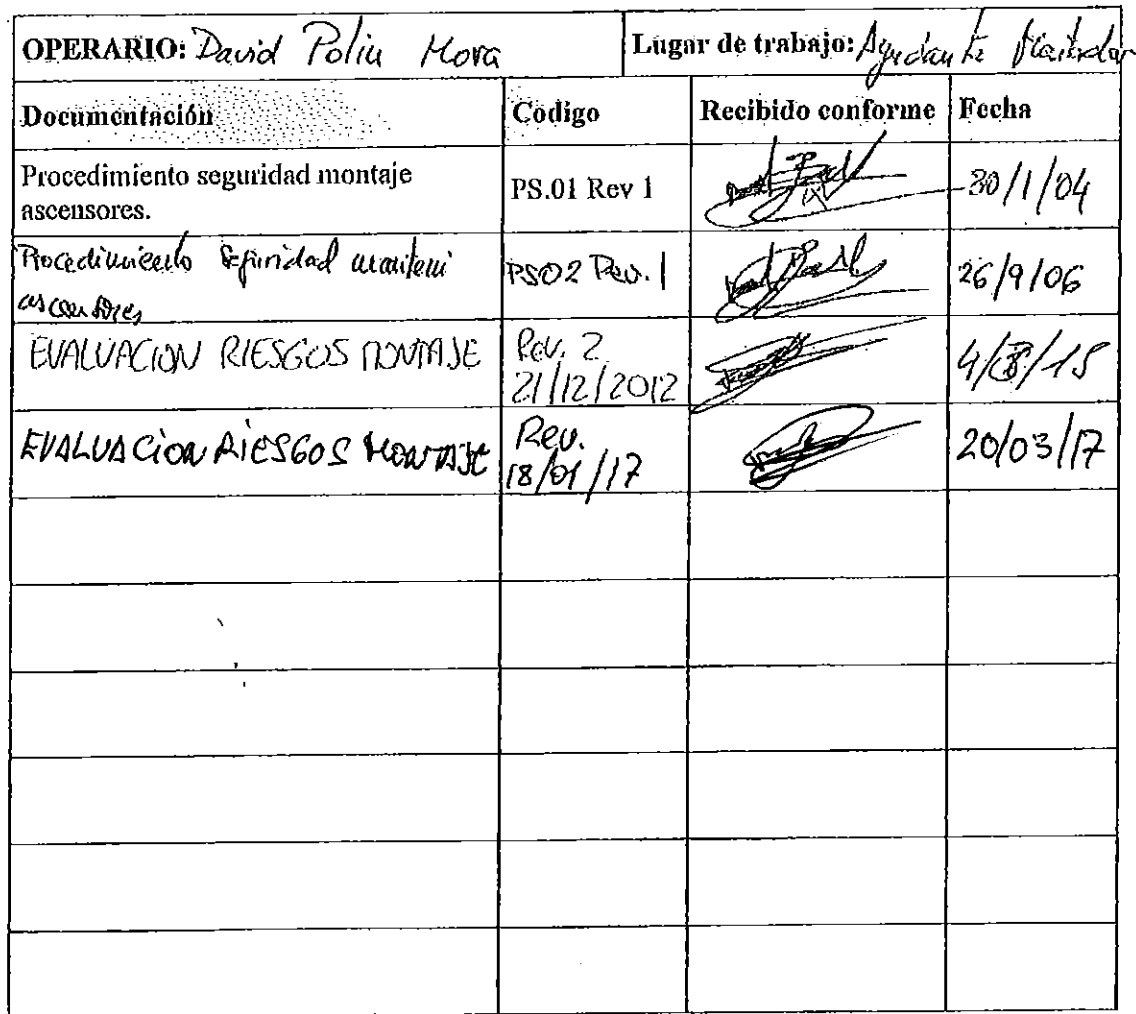 OPERARIO: David Polin Mora
Lugar de trabajo: Ayudante
Documentación Codigo Recibido conforme Fecha
Procedimiento seguridad montaje
ascensores.
PS.01 Rev 1
30/1/04
Procedimiento Seguridad manteni
ascensores
PS02 Rev. 1
26/9/06
EVALUACION RIESGOS MONTAJE
Rev. 2
21/12/2012
4/8/15
EVALUACION RIESGOS MONTAJE
Rev.
18/01/17
20/03/17